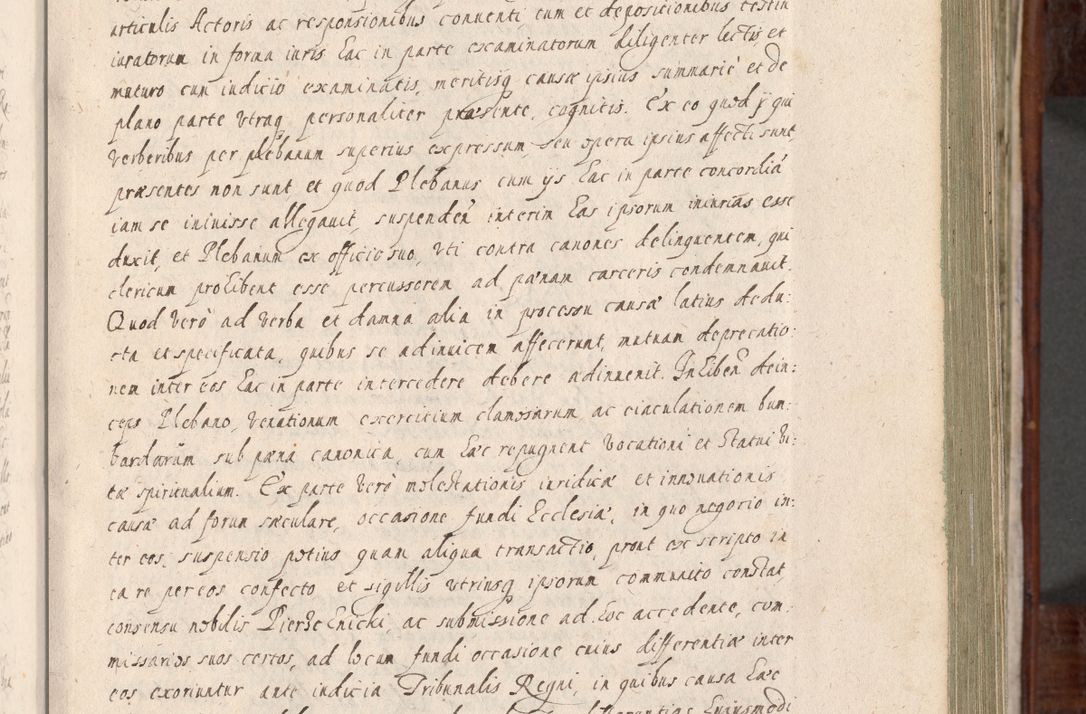 articulis Actoris ac responsionibus conuenti cum et depositionibus testiu
iuratorum in forma iuris hac in parte examinatorum diligenter lectis et
maturo cum iudicio examinatis, meritisq causæ ipsius summariè et de
plano parte utraq personaliter præsente, cognitis. Ex eo quod ÿ qui
verberibus per plebanum superius expressum, seu opera ipsius affecti sunt,
præsentes non sunt et quod Plebanus cum ijs hac in parte concordiā
iam se iniuisse allegauit, suspendeñ interim has ipsorum iniurias esse
duxit, et Plebanum ex officio suo, uti contra canones delinquentem, qui
clericum prohibent esse percussorem ad pænam carceris condemnauit.
Quod verò ad verba et damna alia in processu causæ latius dedu:
cta et specificata, quibus se adinuicem affecerunt, mutuam deprecatio:
nem inter eos hac in parte intercedere debere adinuenit. Inhibeñ dein:
ceps Plebano, venationum exercitium clamosarum, ac eiaculationem bom:
bardarum sub pæna canonica, cum hæc repugnent vocationi et statui vi:
tæ spiritualium. Ex parte verò molestationis iuridicæ et innouationis
causæ ad forum sæculare, occasione fundi Ecclesiæ, in quo negotio in:
ter eos, suspensio potius quam aliqua transactio, prout ex scripto in
ea re per eos confecto et sigillis utriusq ipsorum communito constat,
consensu nobilis ac submissione ad hoc accedente, com:
missarios suos certos, ad locum fundi occasione cuius differentiæ inter
eos exoriuntur ante iudicia Tribunalis Regni, in quibus causa hæc
huiusmodi